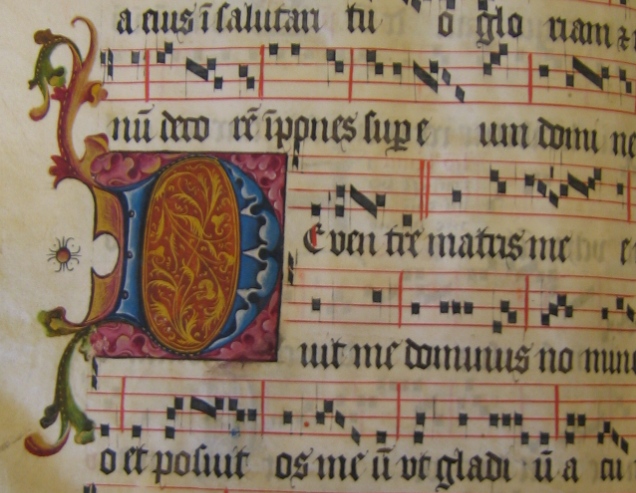 a eius ī salutari tu o glo riam ⁊
nū deco rē īpones sup e uum domi ne
De ven tre matris me e
uit me dominus no mine
o et posuit os me ū ut gladi ū a cu